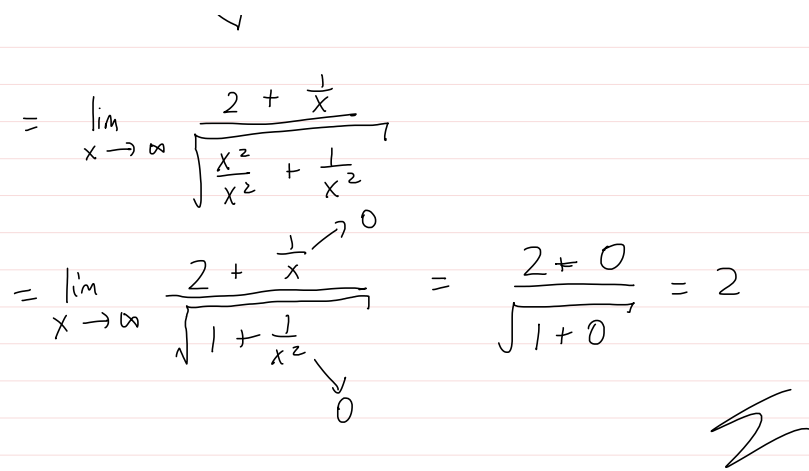 = lim x → ∞ (2 + 1/x) / √(x²/x² + 1/x²)
= lim x → ∞ (2 + 1/x → 0) / √(1 + 1/x² → 0) = (2 + 0) / √(1 + 0) = 2